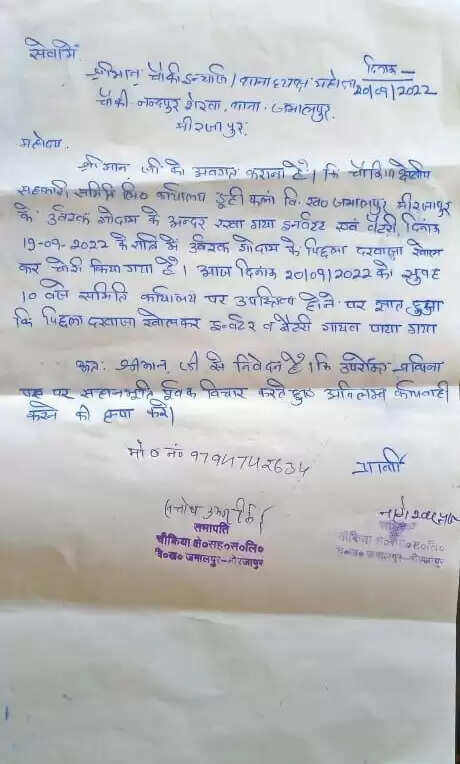 सेवामें,
दिनांक —
श्रीमान चौकी इन्चार्ज / थानाध्यक्ष महोदय 20/09/2022
चौकी नन्दपुर शेरवा, थाना जमालपुर,
मीरजापुर
महोदय,
श्रीमान जी को अवगत कराना है। कि चौकिया क्षेत्रीय
सहकारी समिति लि० कार्यालय डूही कलां वि० ख० जमालपुर, मीरजापुर
के उर्वरक गोदाम के अन्दर रखा गया इन्वर्टर एवं बैटरी, दिनांक
19-09-2022 के रात्रि में उर्वरक गोदाम के पिछला दरवाजा खोल
कर चोरी किया गया है। आज दिनांक 20/09/2022 को सुबह
10 बजे समिति कार्यालय पर उपस्थित होने पर ज्ञात हुआ
कि पिछला दरवाजा खोलकर इन्वर्टर व बैटरी गायब पाया गया
अतः श्रीमान जी से निवेदन है। कि उपरोक्त
पर सहानुभूति पूर्वक विचार करते हुए अविलम्ब कार्यवाही
करने की कृपा करें।
मो० नं० 9794742634 प्रार्थी
सभापति
चौकिया क्षे०सह०स०लि० चौकिया क्षे०स०स०लि०
वि०ख० जमालपुर-मीरजापुर वि०ख० जमालपुर-मीरजापुर